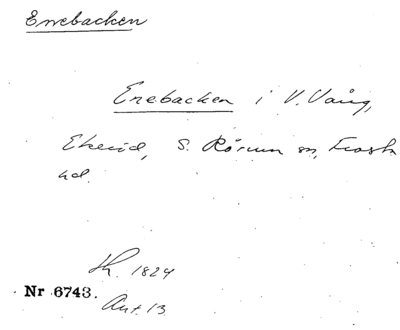 Enebacken
Enebacken i V. Vång,
Ekeröd, S. Rörum sn, Frosta
hd.
Lh. 1824
Nr 6743.
Ant. 13